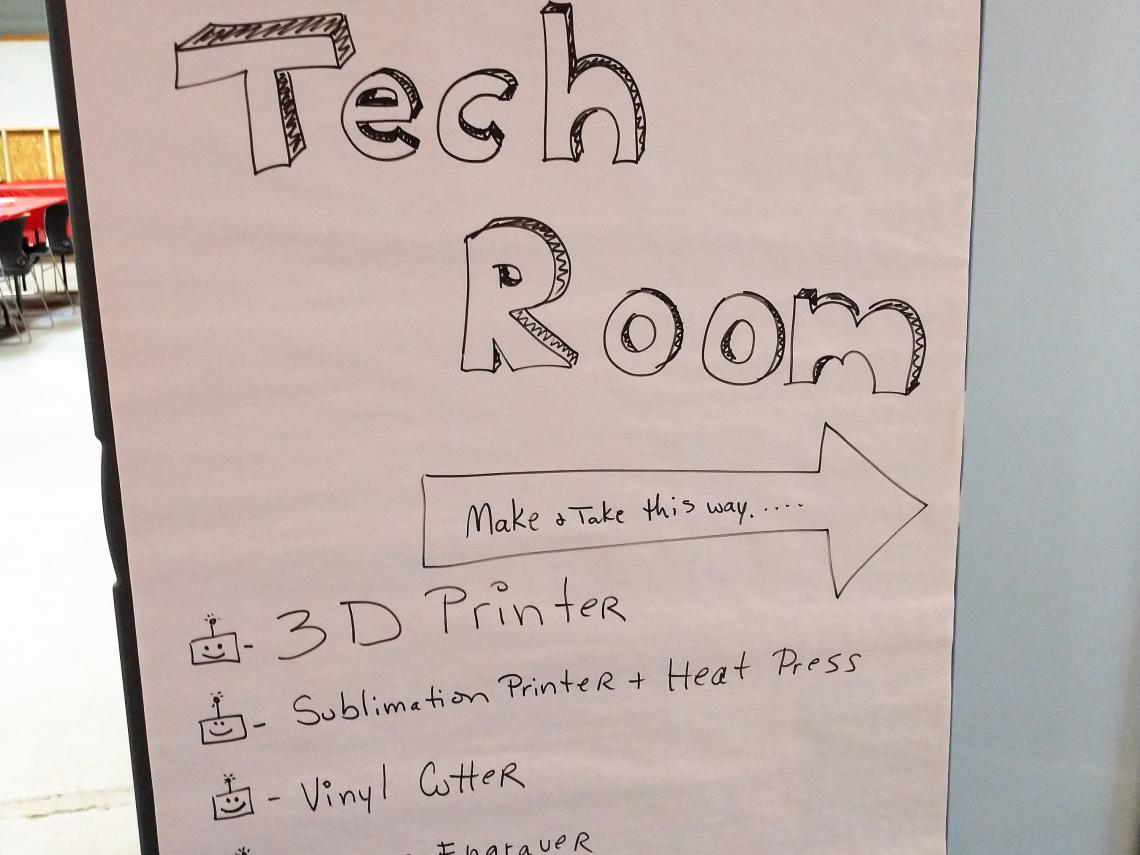 Tech
Room
Make & Take this way.....
- 3D Printer
- Sublimation Printer + Heat Press
- Vinyl Cutter
Engraver